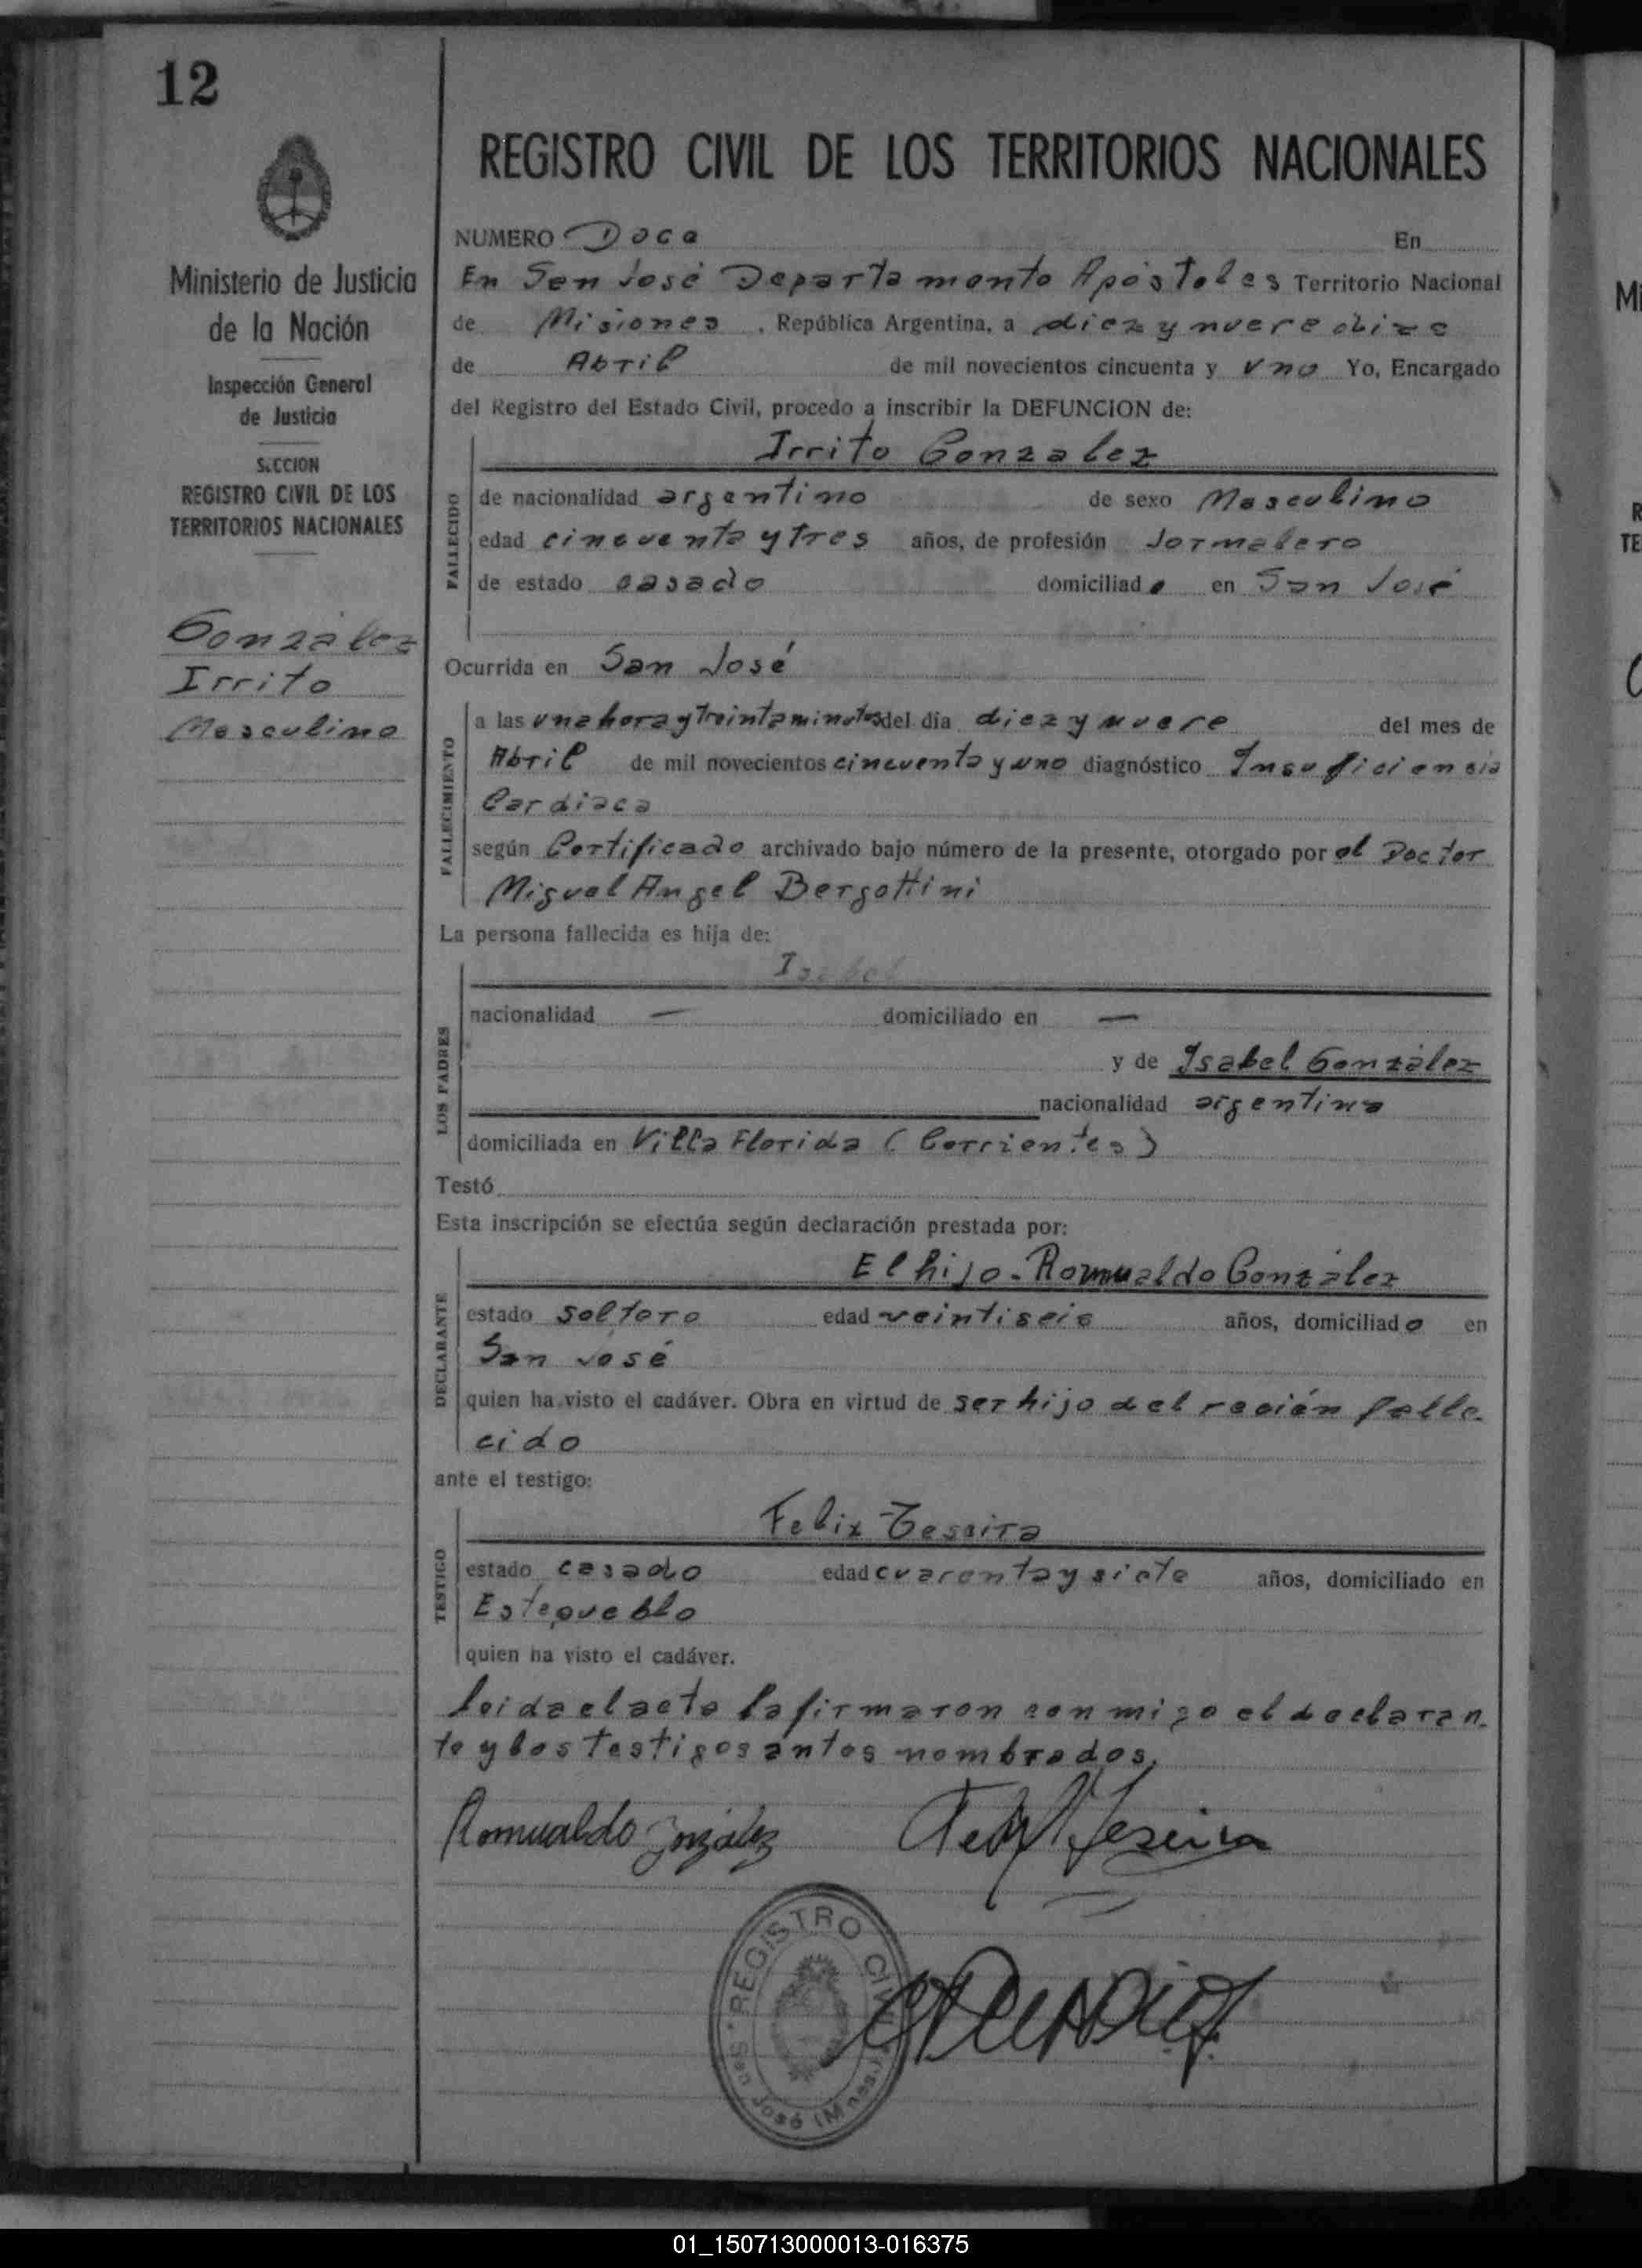 12
Ministerio de Justicia
de la Nación
Inspección General
de Justicia
SECCION
REGISTRO CIVIL DE LOS
TERRITORIOS NACIONALES
González
Irrito
Masculino
REGISTRO CIVIL DE LOS TERRITORIOS NACIONALES
NUMERO Doce En
En San José Departamento Apóstoles Territorio Nacional
de Misiones, República Argentina, a diez y nueve
de Abril de mil novecientos cincuenta y uno Yo, Encargado
del Registro del Estado Civil, procedo a inscribir la DEFUNCION de:
Irrito Gonzalez
FALLECIDO
de nacionalidad argentino de sexo Masculino
edad cincuenta y tres años, de profesión Jornalero
de estado casado domiciliado en San José
Ocurrida en San José
FALLECIMIENTO
a las una hora y treinta minutos del día diez y nueve del mes de
Abril de mil novecientos cincuenta y uno diagnóstico Insuficiencia
Cardiaca
según Certificado archivado bajo número de la presente, otorgado por el Doctor
Miguel Angel Bergottini
La persona fallecida es hija de:
Isabel
LOS PADRES
nacionalidad — domiciliado en —
y de Isabel González
nacionalidad argentina
domiciliada en Villa Florida (Corrientes)
Testó
Esta inscripción se efectúa según declaración prestada por:
El hijo - Romualdo González
DECLARANTE
estado soltero edad veintiseis años, domiciliado en
San José
quien ha visto el cadáver. Obra en virtud de ser hijo del recién falle-
cido
ante el testigo:
Felix Teseira
TESTIGO
estado casado edad cuarenta y siete años, domiciliado en
Este pueblo
quien ha visto el cadáver.
Leida el acta la firmaron conmigo el declaran-
te y los testigos antes nombrados.
Romualdo González Felix Teseira
REGISTRO CIVIL
San José (Mnes.)
01_150713000013-016375